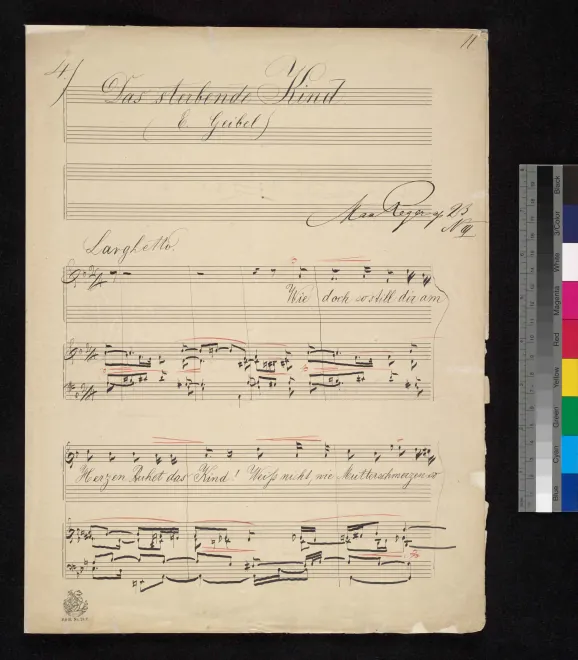 11
4)
Das sterbende Kind
(E. Geibel)
Max Reger op. 23
N III
Larghetto
Wie doch so still dir am
Herzen Ruhet das Kind! Weiß nicht, wie Mutterschmerzen
Black
3/Color
White
Magenta
Red
Yellow
Green
Cyan
Blue